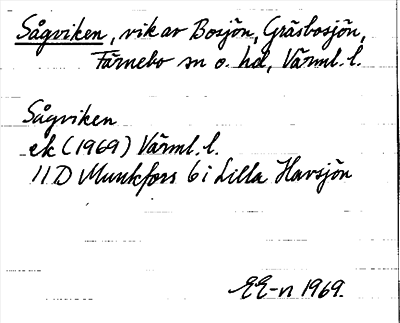 Sågviken, vik av Bosjön, Gräsbosjön,
Färnebo sn o. hd, Värml. l.
Sågviken
ek (1969) Värml. l.
11D Munkfors 6 i Lilla Havsjön
EE-n 1969.